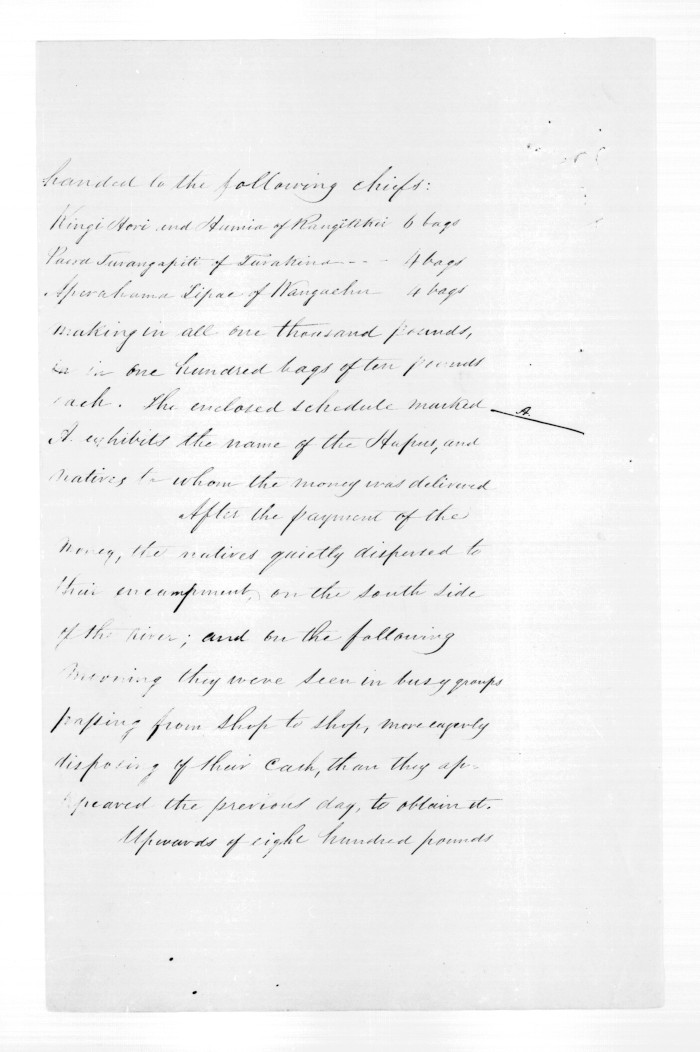 handed to the following chiefs:
Kingi Hori and Hamia of Rangitikei 6 bags
Turangapiti of Turakina --- 4 bags
Aperahama Tipae of Wangaehu 4 bags
making in all one thousand pounds,
in one hundred bags of ten pounds
each. The enclosed schedule marked A.
A. exhibits the name of the Hapus, and
natives to whom the money was delivered
After the payment of the
money, the natives quietly dispersed to
their encampment, on the south side
of the river; and on the following
morning they were seen in busy groups
passing from shop to shop, more eagerly
disposing of their cash, than they ap-
peared the previous day, to obtain it.
Upwards of eight hundred pounds